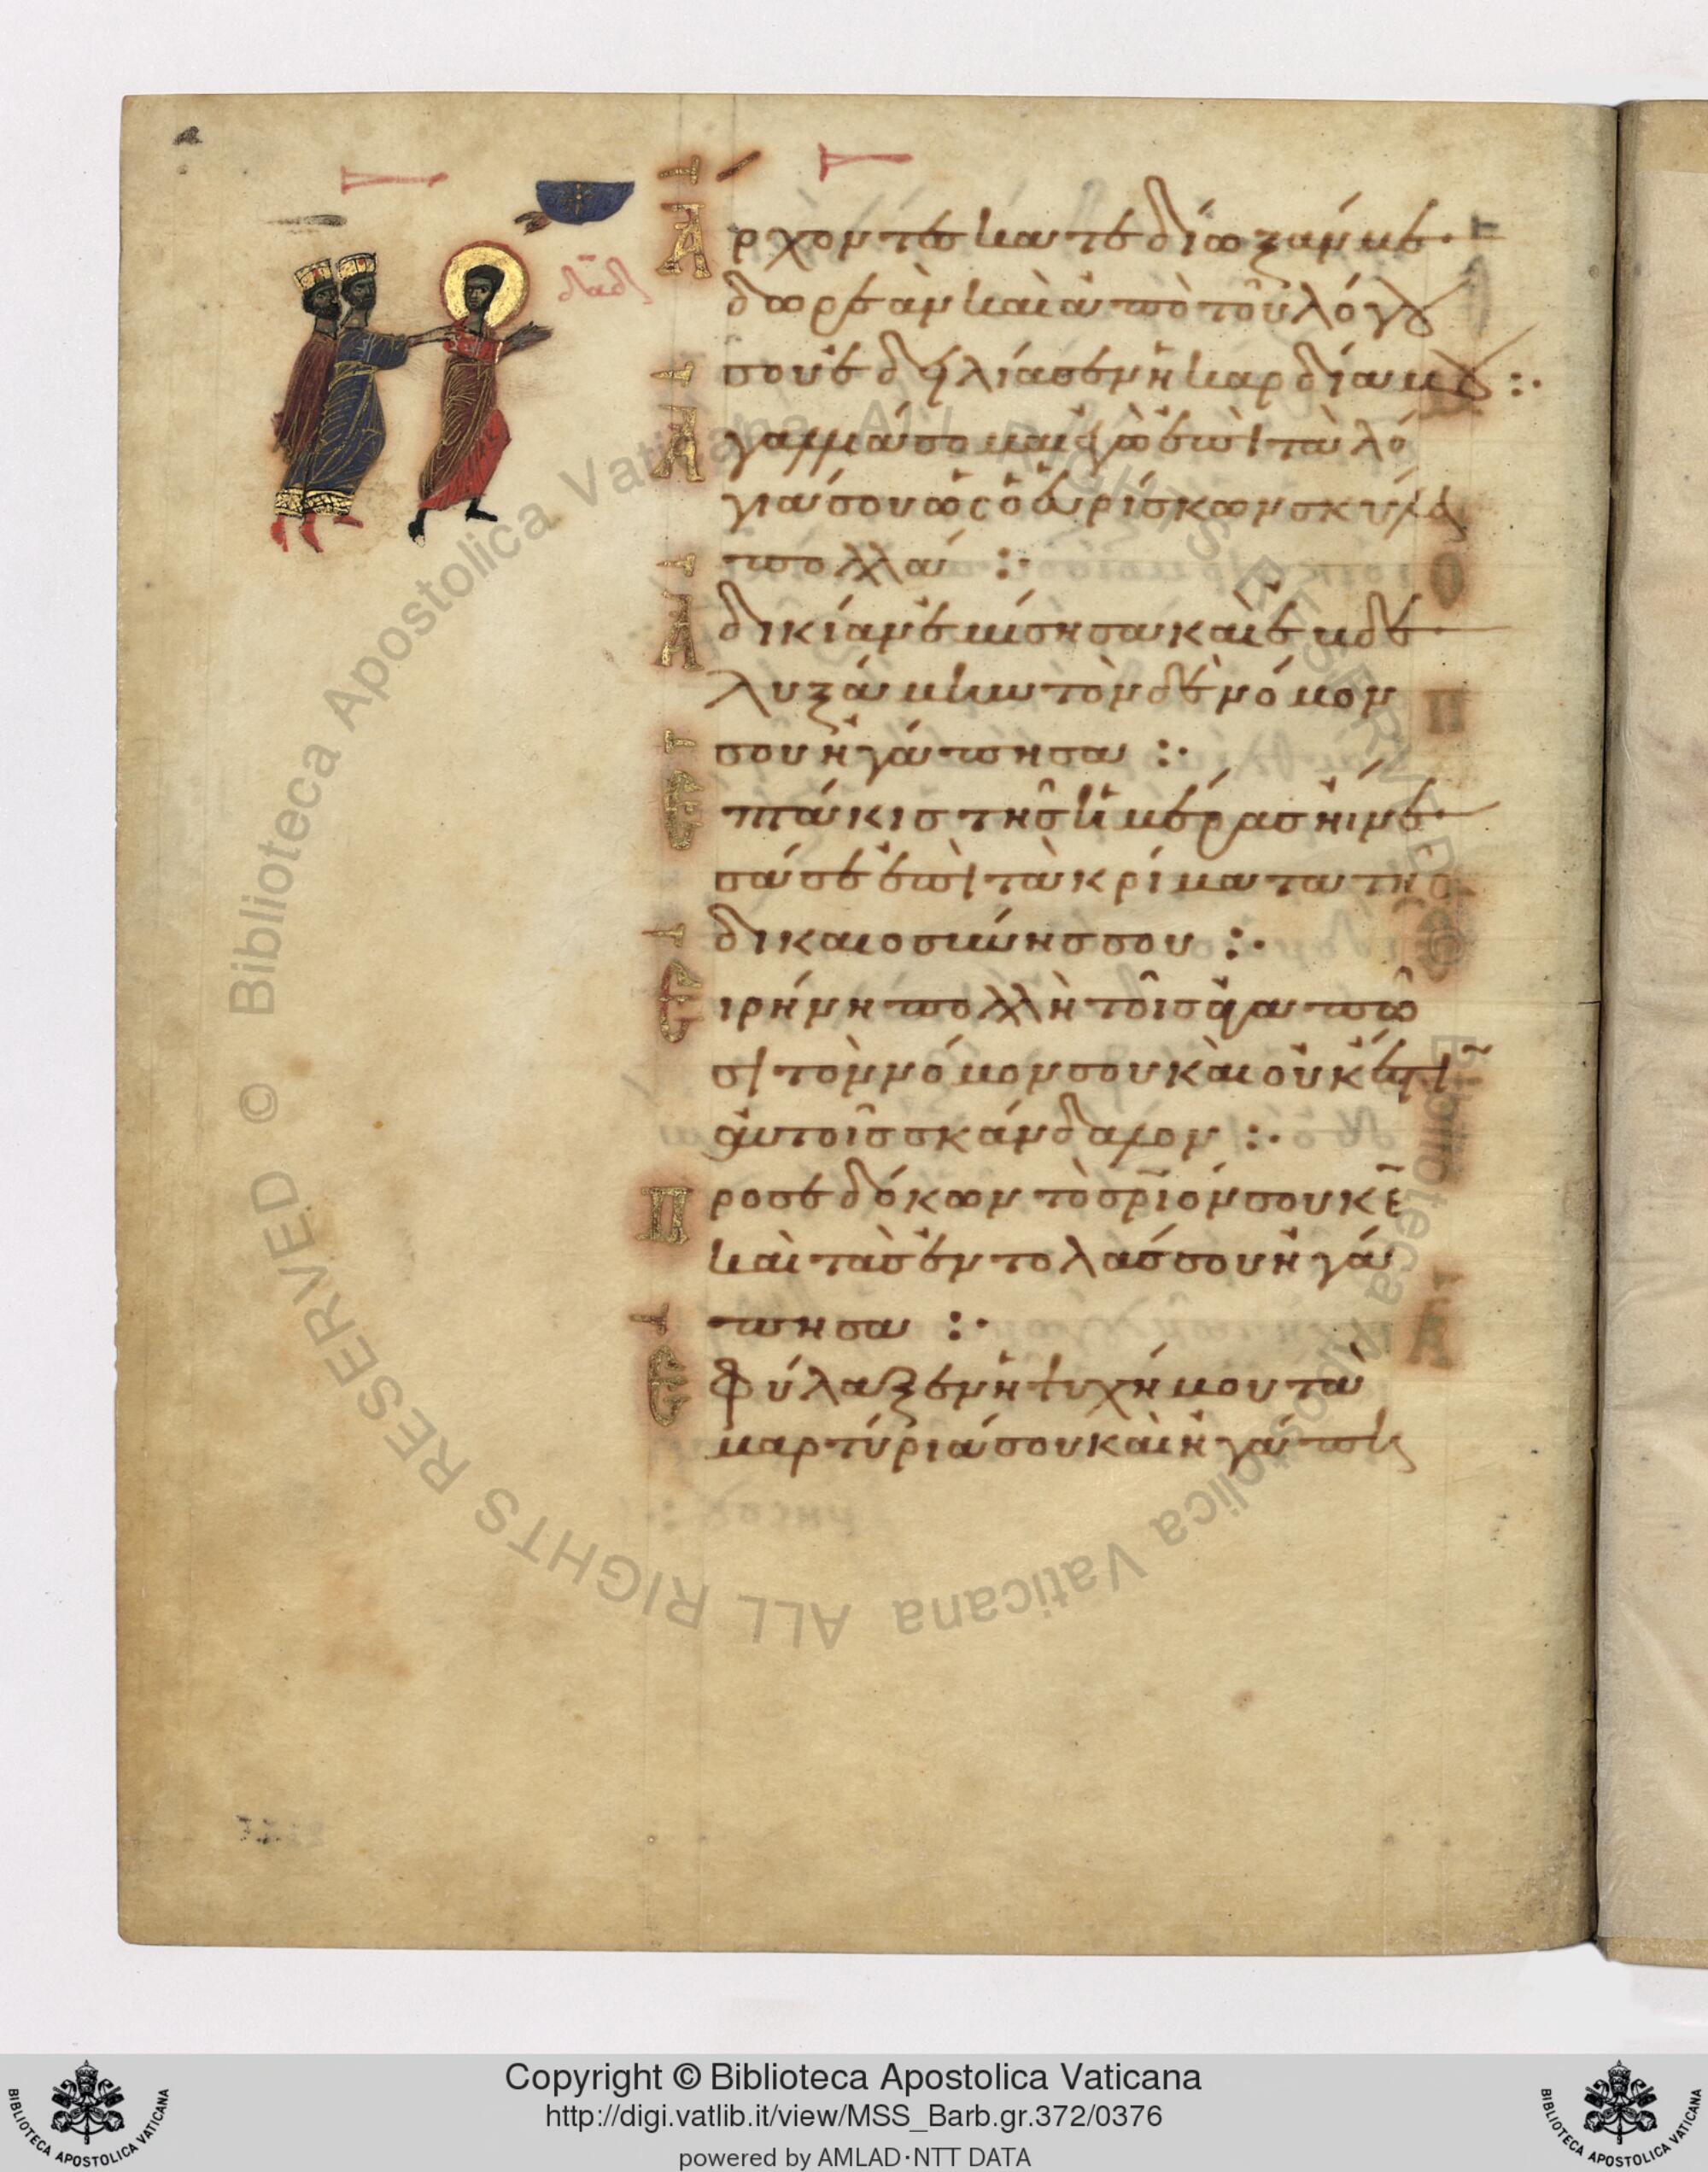 δᾱδ
Ἄρχοντες κατεδίωξάν με
δωρεὰν καὶ ἀπὸ τοῦ λόγου
σου ἐδειλίασεν ἡ καρδία μου :·
Ἀγαλλιάσομαι ἐγὼ ἐπὶ τὰ λό
γιά σου ὡς ὁ εὑρίσκων σκύλα
πολλά :·
Ἀδικίαν ἐμίσησα καὶ ἐβδε
λυξάμην τὸν δὲ νόμον
σου ἠγάπησα :·
Ἑπτάκις τῆς ἡμέρας ᾔνε
σά σε ἐπὶ τὰ κρίματα τῆς
δικαιοσύνης σου :·
Εἰρήνη πολλὴ τοῖς ἀγαπῶ
σι τὸν νόμον σου καὶ οὐκ ἔστι
αὐτοῖς σκάνδαλον :·
Προσεδόκων τὸ σρ̅ιόν σου κε̅
καὶ τὰς ἐντολάς σου ἠγά
πησα :·
Ἐφύλαξεν ἡ ψυχή μου τὰ
μαρτύριά σου καὶ ἠγάπη
Copyright © Biblioteca Apostolica Vaticana
http://digi.vatlib.it/view/MSS_Barb.gr.372/0376
powered by AMLAD·NTT DATA
BIBLIOTECA APOSTOLICA VATICANA
BIBLIOTECA APOSTOLICA VATICANA
© Biblioteca Apostolica Vaticana ALL RIGHTS RESERVED © Biblioteca Apostolica Vaticana ALL RIGHTS RESERVED